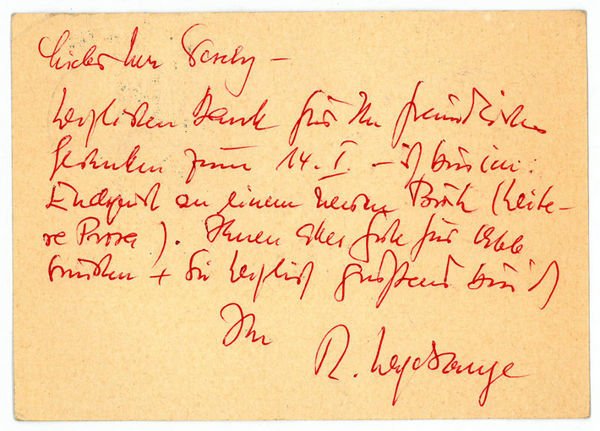 Lieber Herr
herzlichen Dank für Ihr freundliches
Gedenken zum 14. I – ich bin im
Endspurt zu einem neuen Buch (heite-
re Prosa). Ihnen alles Gute für
wünschen + Sie herzlich grüßend bin ich
Ihr
R.